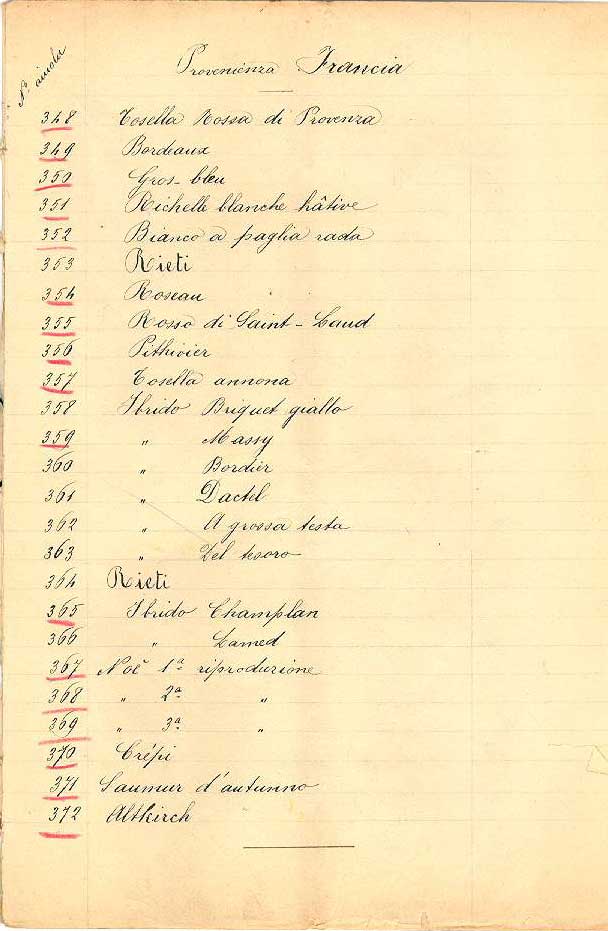 N.° aiuola
Provenienza Francia
348 Tosella Rossa di Provenza
349 Bordeaux
350 Gros-bleu
351 Richelle blanche hâtive
352 Bianco a paglia rada
353 Rieti
354 Roseau
355 Rosso di Saint-Laud
356 Pithivier
357 Tosella annona
358 Ibrido Briquet giallo
359 " Massy
360 " Bordier
361 " Dattel
362 " A grossa testa
363 " Del tesoro
364 Rieti
365 Ibrido Champlan
366 " Lamed
367 Noè 1ª riproduzione
368 " 2ª "
369 " 3ª "
370 Crépi
371 Saumur d'autunno
372 Altkirch